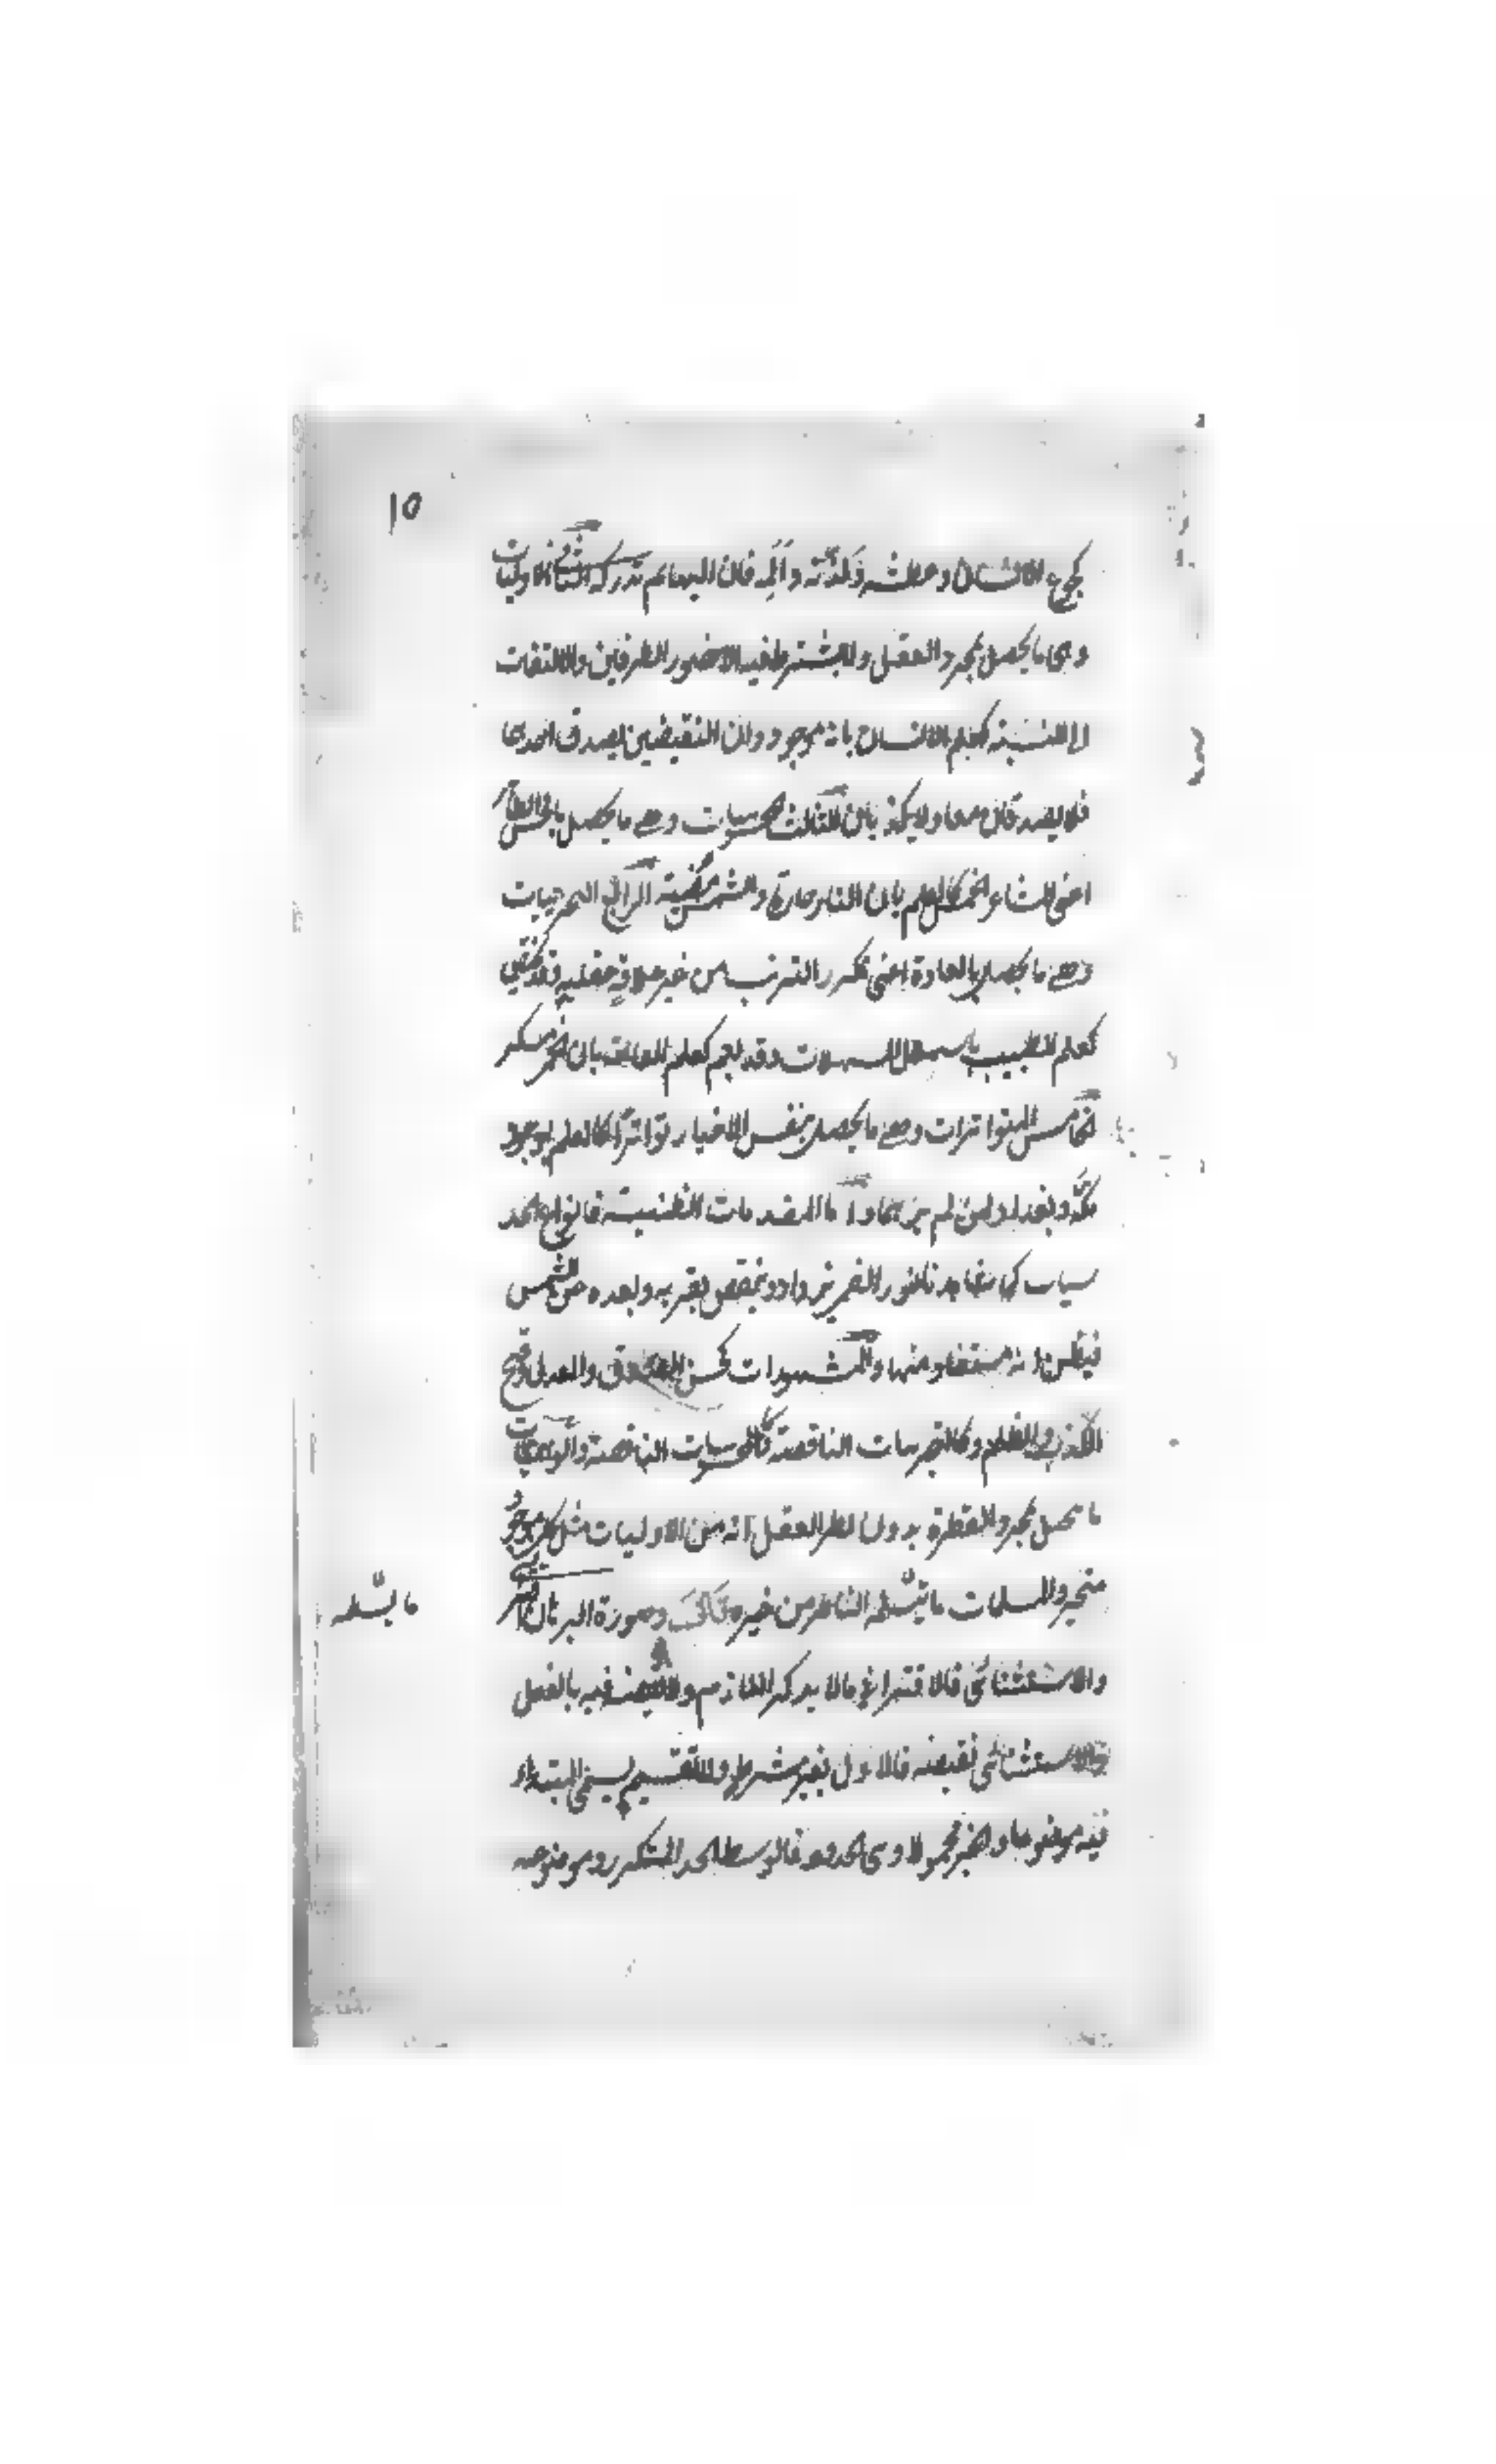 ١٥
كجوع الانسان وعطشه ولذته والمه فان البهائم تدركه الثاني الاوليات
وهى ما يحصل بمجرد العقل ولا يشترط فيه الا حضور الطرفين والالتفات
الى النسبة كعلم الانسان بانه موجود وان النقيضين يصدق احدهما
فلا يصدقان معا ولا يكذبان الثالث المحسوسات وهى ما يحصل بالحس الظاهر
اعنى المشاعر الخمس كالعلم بان النار حارة والشمس مضيئة الرابع التجريبيات
وهى ما يحصل بالعادة اعنى تكرر الترتب من غير علاقة عقلية وقد تختص
كعلم الطبيب باسهال المسهلات وقد يعم كعلم العامة بان الخمر مسكر
الخامس المتواترات وهى ما يحصل بنفس الاخبار تواترا كالعلم بوجود
مكة وبغداد لمن لم يرهما واما المقدمات الظنية فانواع الحد
سيات كما شاهدنا نور القمر يزداد وينقص بقربه وبعده من الشمس
فيظن انه مستفاد منها والمشهورات كحسن الصدق والعدل وقبح
الكذب والظلم وكالتجربيات الناقصة وكالمحسوسات الناقصة والوهميات
ما يحصل بمجرد الفطرة بدون نظر العقل انه من الاوليات مثل كل موجود
متحيز والمسلمات ما يتسلمه الناظر من غيره وصورة البرهان
ما يتسلمه
والاستثنائى فالاقترانى ما لا يذكر اللازم ولا نقيضه فيه بالفعل
والاستثنائى نقيضه فالاول بغير شرط ولا تقسيم يسمى المبتداء
فيه موضوعا والخبر محمولا وهى الحدود فالوسط الحد المتكرر وموضوعه